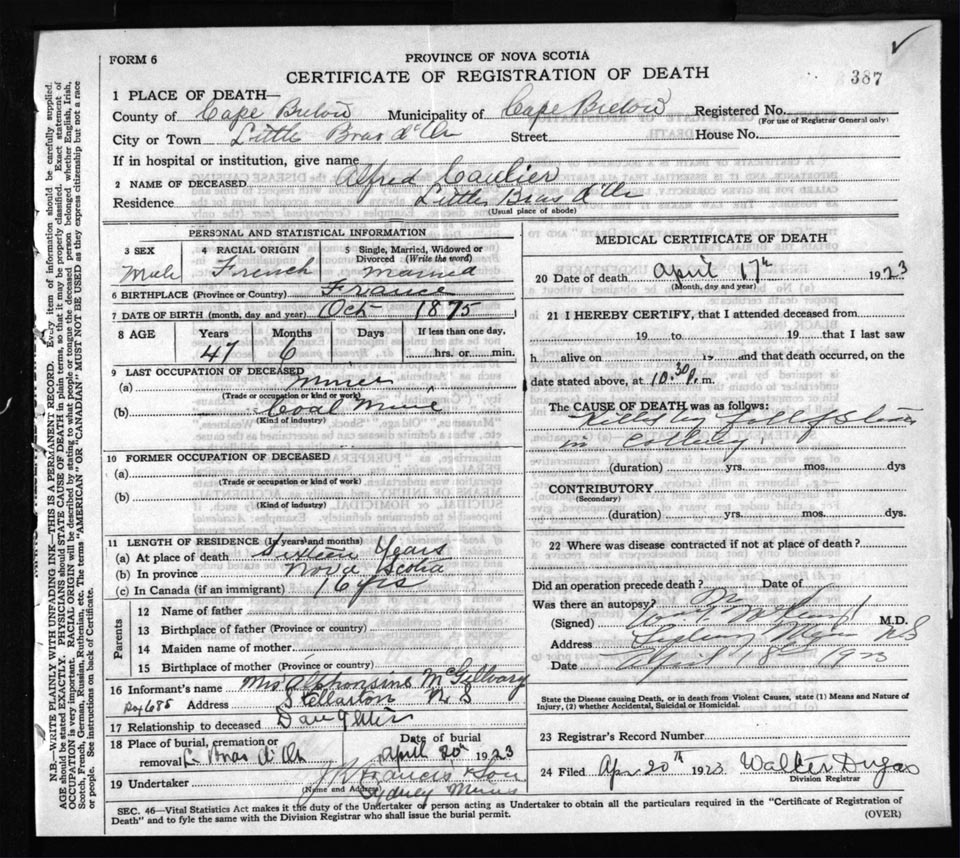 FORM 6
PROVINCE OF NOVA SCOTIA
CERTIFICATE OF REGISTRATION OF DEATH
387
1 PLACE OF DEATH—
County of Cape Breton Municipality of Cape Breton Registered No.
(For use of Registrar General only)
City or Town Little Bras d'Or Street House No.
If in hospital or institution, give name
2 NAME OF DECEASED Alfred Caulier
Residence Little Bras d'Or
(Usual place of abode)
PERSONAL AND STATISTICAL INFORMATION
3 SEX 4 RACIAL ORIGIN 5 Single, Married, Widowed or Divorced (Write the word)
Male French Married
6 BIRTHPLACE (Province or Country) France
7 DATE OF BIRTH (month, day and year) Oct 1875
8 AGE Years Months Days If less than one day,
47 6 hrs. or min.
9 LAST OCCUPATION OF DECEASED
(a) Miner
(Trade or occupation or kind or work)
(b) Coal Mine
(Kind of industry)
10 FORMER OCCUPATION OF DECEASED
(a)
(Trade or occupation or kind of work)
(b)
(Kind of industry)
11 LENGTH OF RESIDENCE (In years and months)
(a) At place of death Sixteen Years
(b) In province Nova Scotia
(c) In Canada (if an immigrant) 16 yrs
Parents
12 Name of father
13 Birthplace of father (Province or country)
14 Maiden name of mother
15 Birthplace of mother (Province or country)
16 Informant's name Mrs Alphonsine McGillvary
Box 685 Address Stellarton N S
17 Relationship to deceased Daughter
18 Place of burial, cremation or
removal L. Bras d'Or April 20th 1923
19 Undertaker J R Francis & Son
(Name and Address)
Sydney Mines
MEDICAL CERTIFICATE OF DEATH
20 Date of death April 17th 1923
(Month, day and year)
21 I HEREBY CERTIFY, that I attended deceased from
19 to 19 that I last saw
h alive on 19 and that death occurred, on the
date stated above, at 10.30 P. m.
The CAUSE OF DEATH was as follows:
Killed by fall of Stone
in Colliery
(duration) yrs. mos. dys
CONTRIBUTORY
(Secondary)
(duration) yrs. mos. dys.
22 Where was disease contracted if not at place of death?
Did an operation precede death? Date of
Was there an autopsy? No
(Signed) M.D.
Address Sydney Mines NS
Date April 18th 1923
State the Disease causing Death, or in death from Violent Causes, state (1) Means and Nature of
Injury, (2) whether Accidental, Suicidal or Homicidal.
23 Registrar's Record Number
24 Filed Apr 20th 1923 Walter Dugas
Division Registrar
SEC. 46—Vital Statistics Act makes it the duty of the Undertaker or person acting as Undertaker to obtain all the particulars required in the "Certificate of Registration of
Death" and to fyle the same with the Division Registrar who shall issue the burial permit.
(OVER)
N.B.—WRITE PLAINLY WITH UNFADING INK—THIS IS A PERMANENT RECORD. Every item of information should be carefully supplied.
AGE should be stated EXACTLY. PHYSICIANS should STATE CAUSE OF DEATH in plain terms, so that it may be properly classified. Exact statement of
OCCUPATION is very important. RACIAL ORIGIN will be described by stating to what people or tongue the deceased person belonged whether English, Irish,
Scotch, French, German, Russian, Ruthenian, etc. The terms "AMERICAN" OR "CANADIAN" MUST NOT BE USED as they express citizenship but not a race
or people. See instructions on back of Certificate.